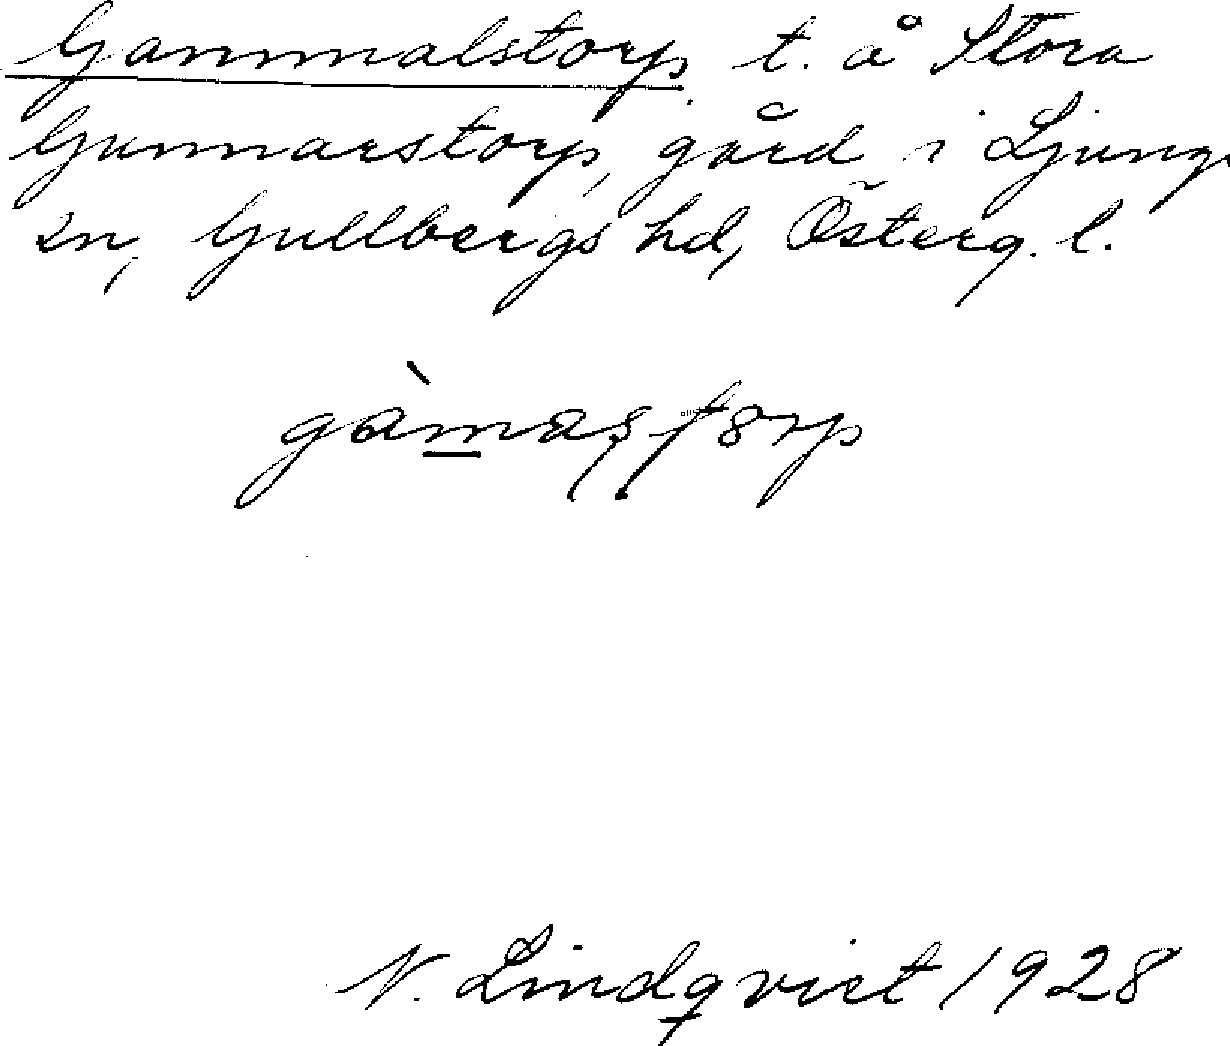 Gammalstorp t. å Stora
Gunnarstorp, gård i Ljungs
sn, Gullbergs hd, Österg. l.
N. Lindqvist 1928